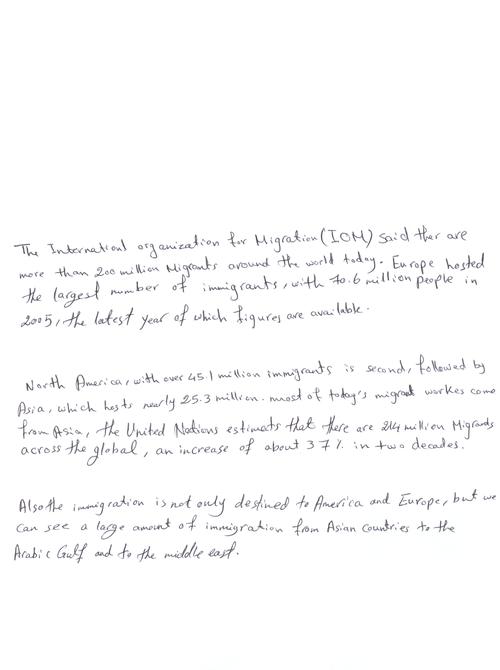 The Internationl organization for Migration (IOM) said ther are
more than 200 million Migrants around the world today. Europe hosted
the largest number of immigrants, with 70.6 million people in
2005, the latest year of which figures are available.
North America, with over 45.1 million immigrants is second, followed by
Asia, which hosts nearly 25.3 million. most of today's migrant workes come
from Asia, the United Nations estimats that there are 214 million Migrants
across the global, an increase of about 37% in two decades.
Also the immigration is not only destined to America and Europe, but we
can see a large amount of immigration from Asian Countries to the
Arabic Gulf and to the middle east.